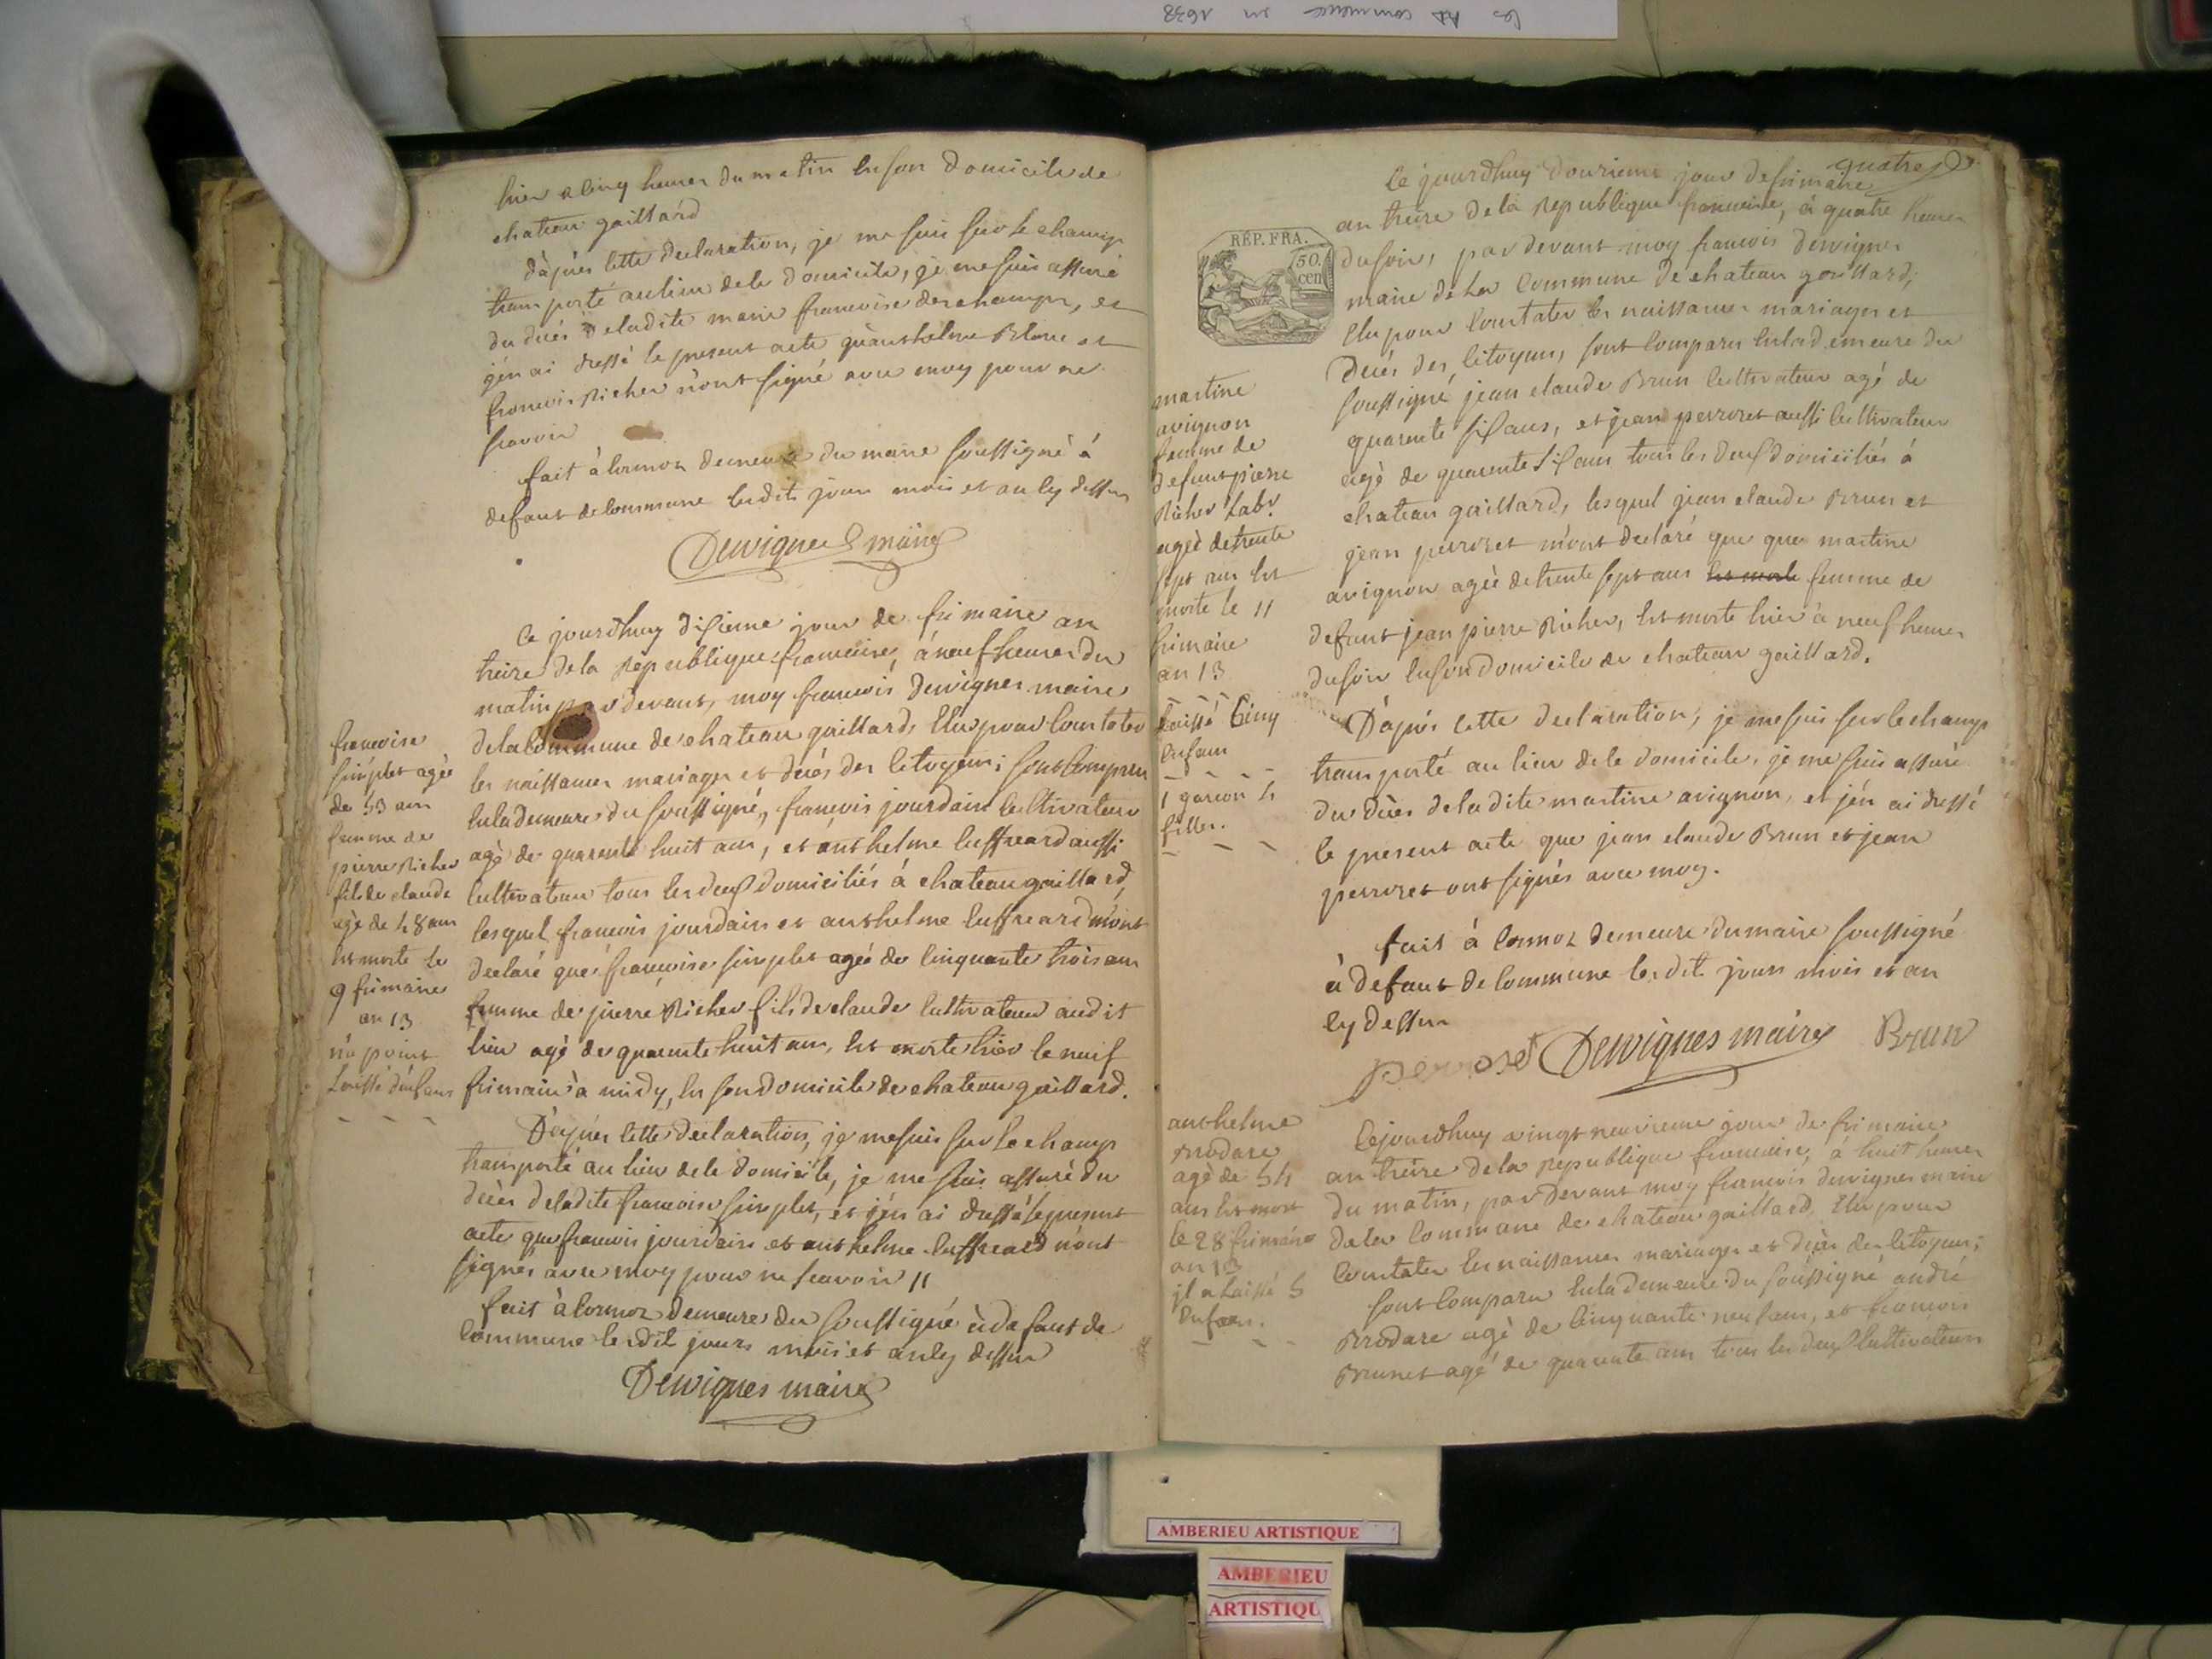 les commence en 1638
hier a cinq heures du matin en son domicile de
chateau gaillard
d'aprés cette declaration, je me suis sur le champ
transporté au lieu de le domicile, je me suis assuré
du dècés de ladite marie francoise deschamps, et
j'én ai dressé le present acte qu'anthelme Blanc et
francois Richer n'ont signé avec moy pour ne
scavoir
fait à cormoz demeure du maire soussigné à
defaut de commune lesdits jour mois et an cy dessus
Dervignes maire
francoise
simplet agée
de 53 ans
femme de
pierre Richer
fils de claude
agé de 48 ans
est morte le
9 frimaire
an 13
n'a point
Laissé d'enfans
Ce jourd'huy dixieme jour de frimaire an
treize de la République francaise, à neuf heures du
matin par devant, moy francois dervignes maire
de la commune de chateau gaillard, Elu pour constater
les naissances mariages et dècés des citoyens; sont comparu
en la demeure du soussigné, francois jourdain cultivateur
agé de quarente huit ans, et anthelme cuffreard aussi
cultivateur tous les deux domiciliés à chateau gaillard,
lesquel francois jourdain et anthelme cuffreard m'ont
declaré que francoise simplet agée de cinquante trois ans
femme de pierre Richer fils de claude cultivateur audit
lieu agé de quarente huit ans, est morte hier le neuf
frimaire à midy, en son domicile de chateau gaillard.
D'aprés cette declaration, je me suis sur le champ
transporté au lieu de le domicile, je me suis assuré du
dècés de ladite francoise simplet, et j'én ai dressé le present
acte que francois jourdain et anthelme cuffreard n'ont
signés avec moy pour ne scavoir //
fait à cormoz demeure du soussigné à defaut de
commune lesdit jours mois et an cy dessus
Dervignes maire
quatre
RÉP. FRA.
50.
cen
Ce jourd'huy douzieme jour de frimaire
an treize de la Republique francaise, à quatre heures
du soir, par devant moy francois dervignes
maire de La Commune de chateau gaillard,
Elu pour constater les naissances mariages et
Décés des citoyens, sont comparu en la demeure du
soussigné jean claude Brun cultivateur agé de
quarente six ans, et jean perroset aussi cultivateur
agé de quarente six ans tous les deux domiciliés à
chateau gaillard, lesquel jean claude Brun et
jean perroset m'ont declaré que que martine
avignon agée de trente sept ans est morte femme de
defunt jean pierre Richer, est morte hier à neuf heures
du soir en son domicile de chateau gaillard.
D'aprés cette declaration, je me suis sur le champ
transporté au lieu de le domicile, je me suis assuré
du dècés de ladite martine avignon, et j'én ai dressé
le present acte que jean claude Brun et jean
perroset ont signés avec moy.
fait à cormoz demeure du maire soussigné
à defaut de commune lesdit jours mois et an
cy dessus
perroset Dervignes maire Brun
martine
avignon
femme de
defunt pierre
Richer Labr.
agée de trente
sept ans est
morte le 11
frimaire
an 13
Laissé Cinq
Enfans
1 garcon 4
filles.
anthelme
Brodare
agé de 54
ans est mort
le 28 frimaire
an 13
jl a Laissé 5
Enfans.
Cejourd'huy vingt neuvieme jour de frimaire
an treize de la republique francaise, à huit heures
du matin, par devant moy francois dervignes maire
de la commune de chateau gaillard, Elu pour
constater les naissances mariages et dècés des citoyens;
sont comparu en la demeure du soussigné andré
Brodare agé de cinquante neuf ans, et francois
Brunet agé de quarente ans tous les deux cultivateurs
AMBERIEU ARTISTIQUE
AMBERIEU
ARTISTIQU